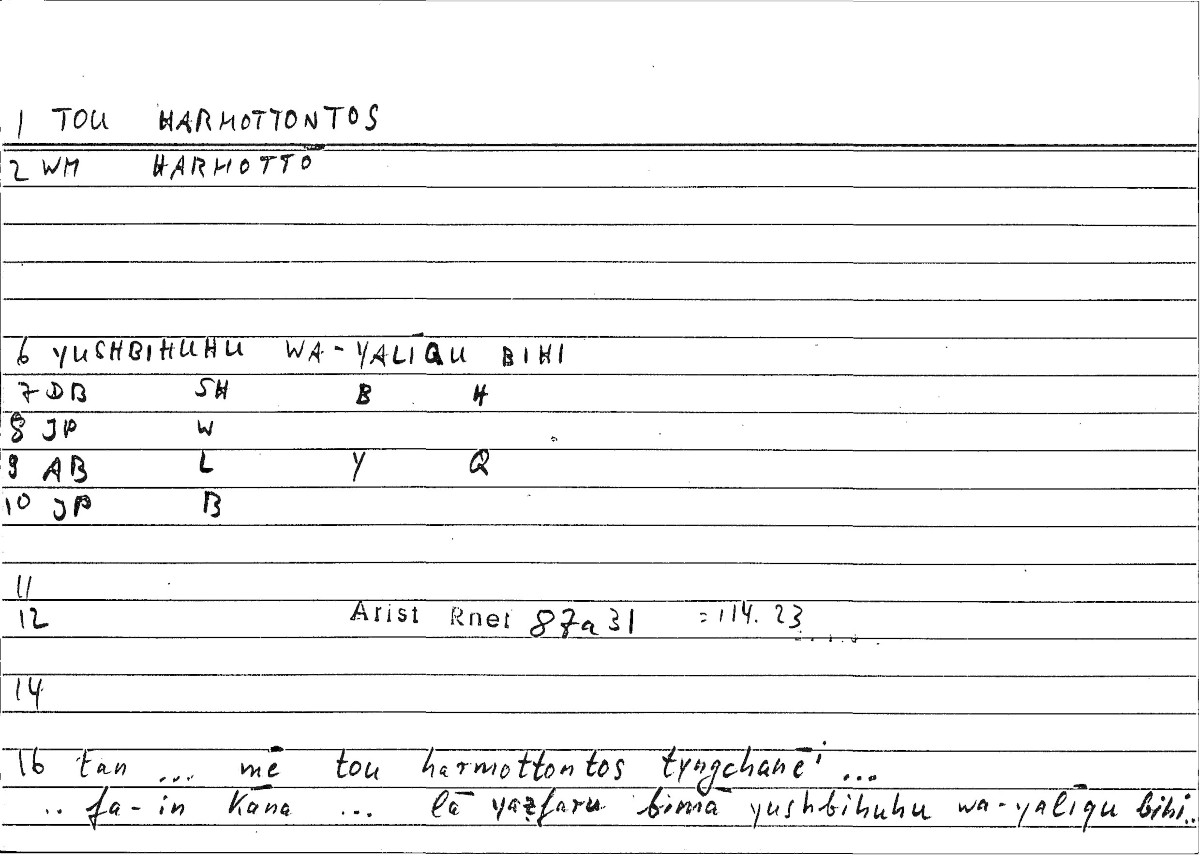 1 TOU HARMOTTONTOS
2 WM HARMOTTO
6 YUSHBIHUHU WA-YALĪQU BIHI
7 DB SH B H
8 JP W
9 AB L Y Q
10 JP B
11
12 Arist Rhet 87a31 =114.23
14
16 tan ... mē tou harmottontos tyngchanē' ...
.. fa-in kāna ... lā yaẓfaru bimā yushbihuhu wa-yalīqu bihi..